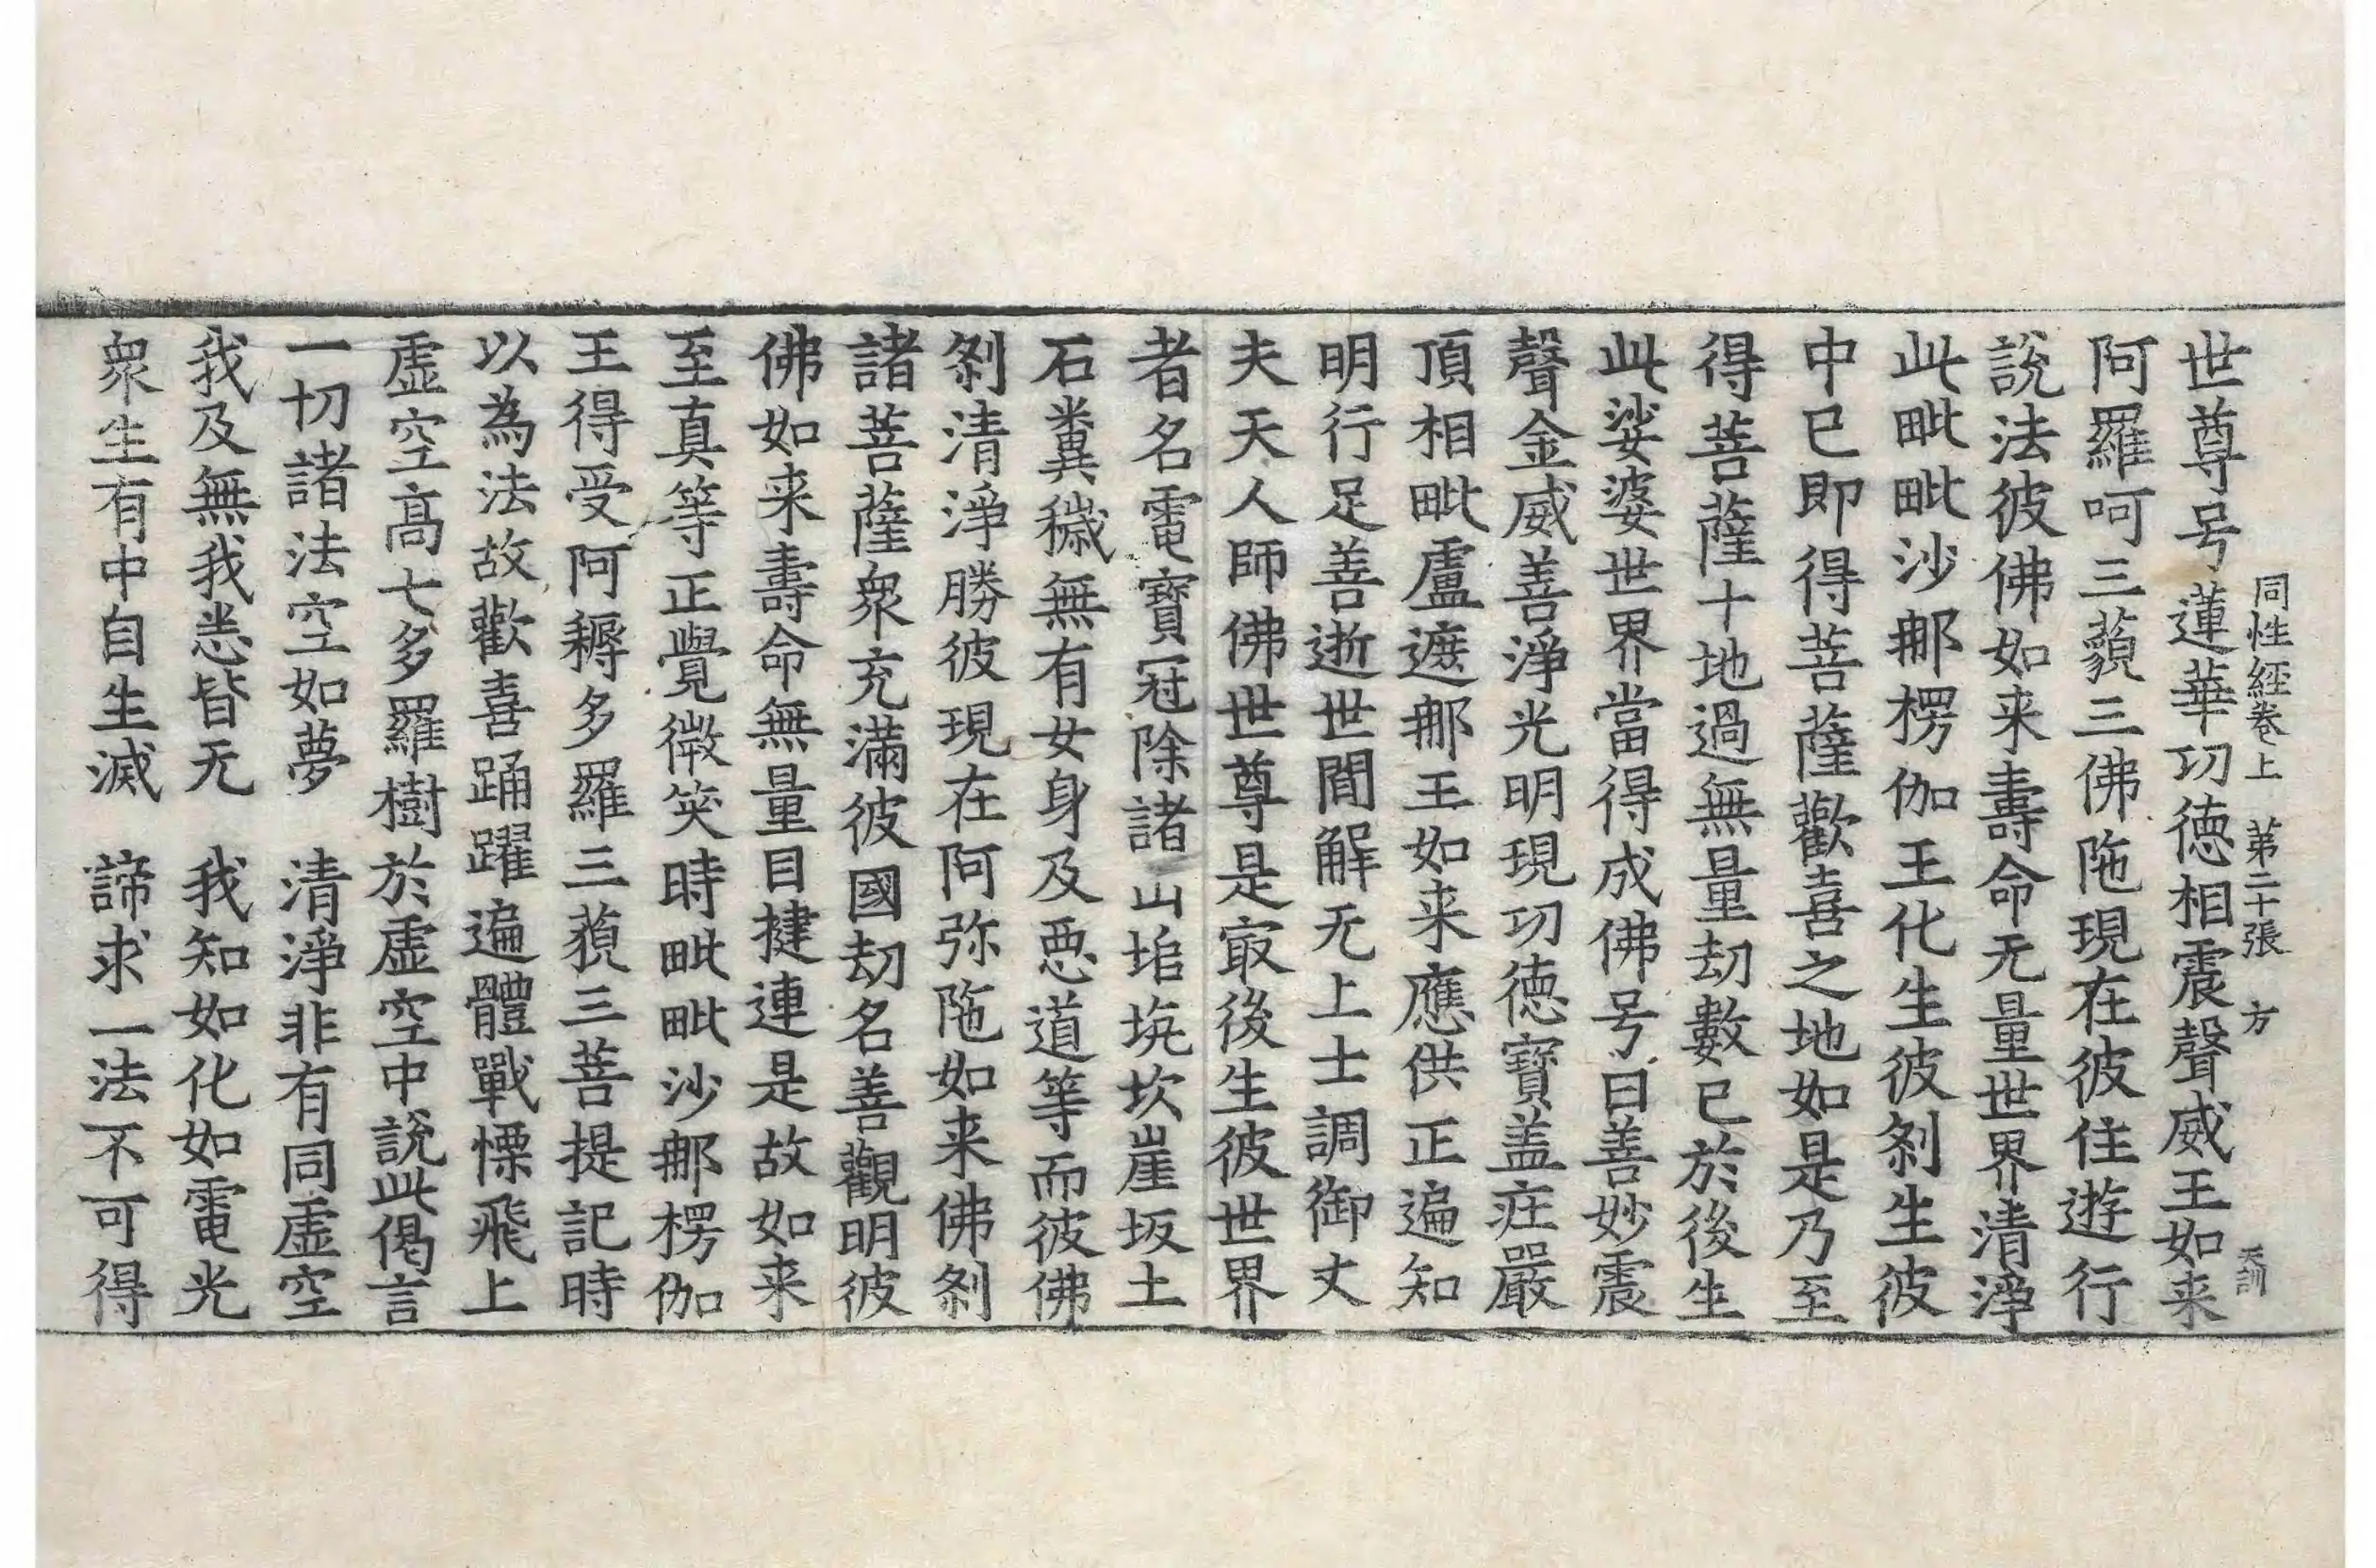 同性經卷上　第二十張　方　天訓
世尊号蓮華功德相震聲威王如来
阿羅呵三藐三佛陁現在彼住遊行
說法彼佛如来壽命无量世界清淨
此毗毗沙那楞伽王化生彼剎生彼
中已即得菩薩歡喜之地如是乃至
得菩薩十地過無量劫數已於後生
此娑婆世界當得成佛号曰善妙震
聲金威善淨光明現功德寶盖庄嚴
頂相毗盧遮那王如来應供正遍知
明行足善逝世間解无上士調御丈
夫天人師佛世尊是㝡後生彼世界
者名電寶冠除諸山埳坑坎崖坂土
石糞穢無有女身及惡道等而彼佛
剎清淨勝彼現在阿弥陁如来佛剎
諸菩薩衆充滿彼國劫名善觀明彼
佛如来壽命無量目揵連是故如来
至真等正覺微笑時毗毗沙那楞伽
王得受阿耨多羅三藐三菩提記時
以為法故歡喜踊躍遍體戰慄飛上
虛空高七多羅樹於虛空中說此偈言
一切諸法空如夢　清淨非有同虛空
我及無我悉皆无　我知如化如電光
衆生有中自生滅　諦求一法不可得